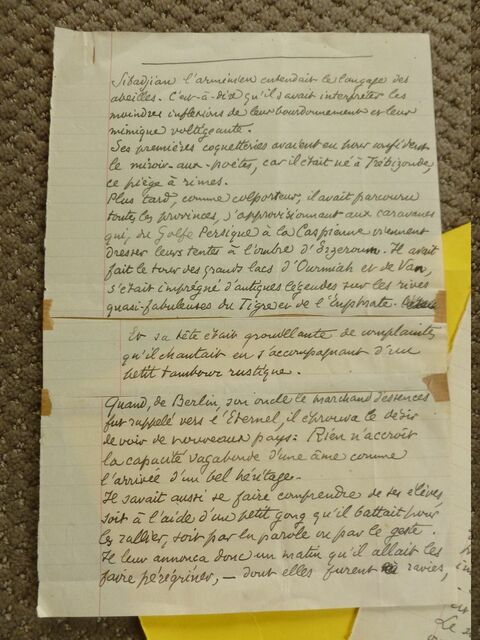 Sibadjian l'arménien entendait le langage des
abeilles. C'est-à-dire qu'il savait interpréter les
moindres inflexions de leur bourdonnement et leur
mimique voltigeante.
Ses premières coquetteries avaient eu pour confident
le miroir-aux-poètes, car il était né à Trébizonde,
ce piège à rimes.
Plus tard, comme colporteur, il avait parcouru
toutes les provinces, s'approvisionnant aux caravanes
qui, du Golfe Persique à la Caspienne viennent
dresser leurs tentes à l'ombre d'Erzeroum. Il avait
fait le tour des grands lacs d'Ourmiah et de Van,
s'était imprégné d'antiques légendes sur les rives
quasi-fabuleuses du Tigre et de l'Euphrate.
Et sa tête était grouillante de complaintes
qu'il chantait en s'accompagnant d'un
petit tambour rustique.
Quand, de Berlin, son oncle le marchand d'essences
fut rappelé vers l'Eternel, il éprouva le désir
de voir de nouveaux pays: Rien n'accroît
la capacité vagabonde d'une âme comme
l'arrivée d'un bel héritage.
Il savait aussi se faire comprendre de ses élèves
soit à l'aide d'un petit gong qu'il battait pour
les rallier, soit par la parole ou par le geste.
Il leur annonça donc un matin qu'il allait les
faire pérégriner, — dont elles furent ravies,